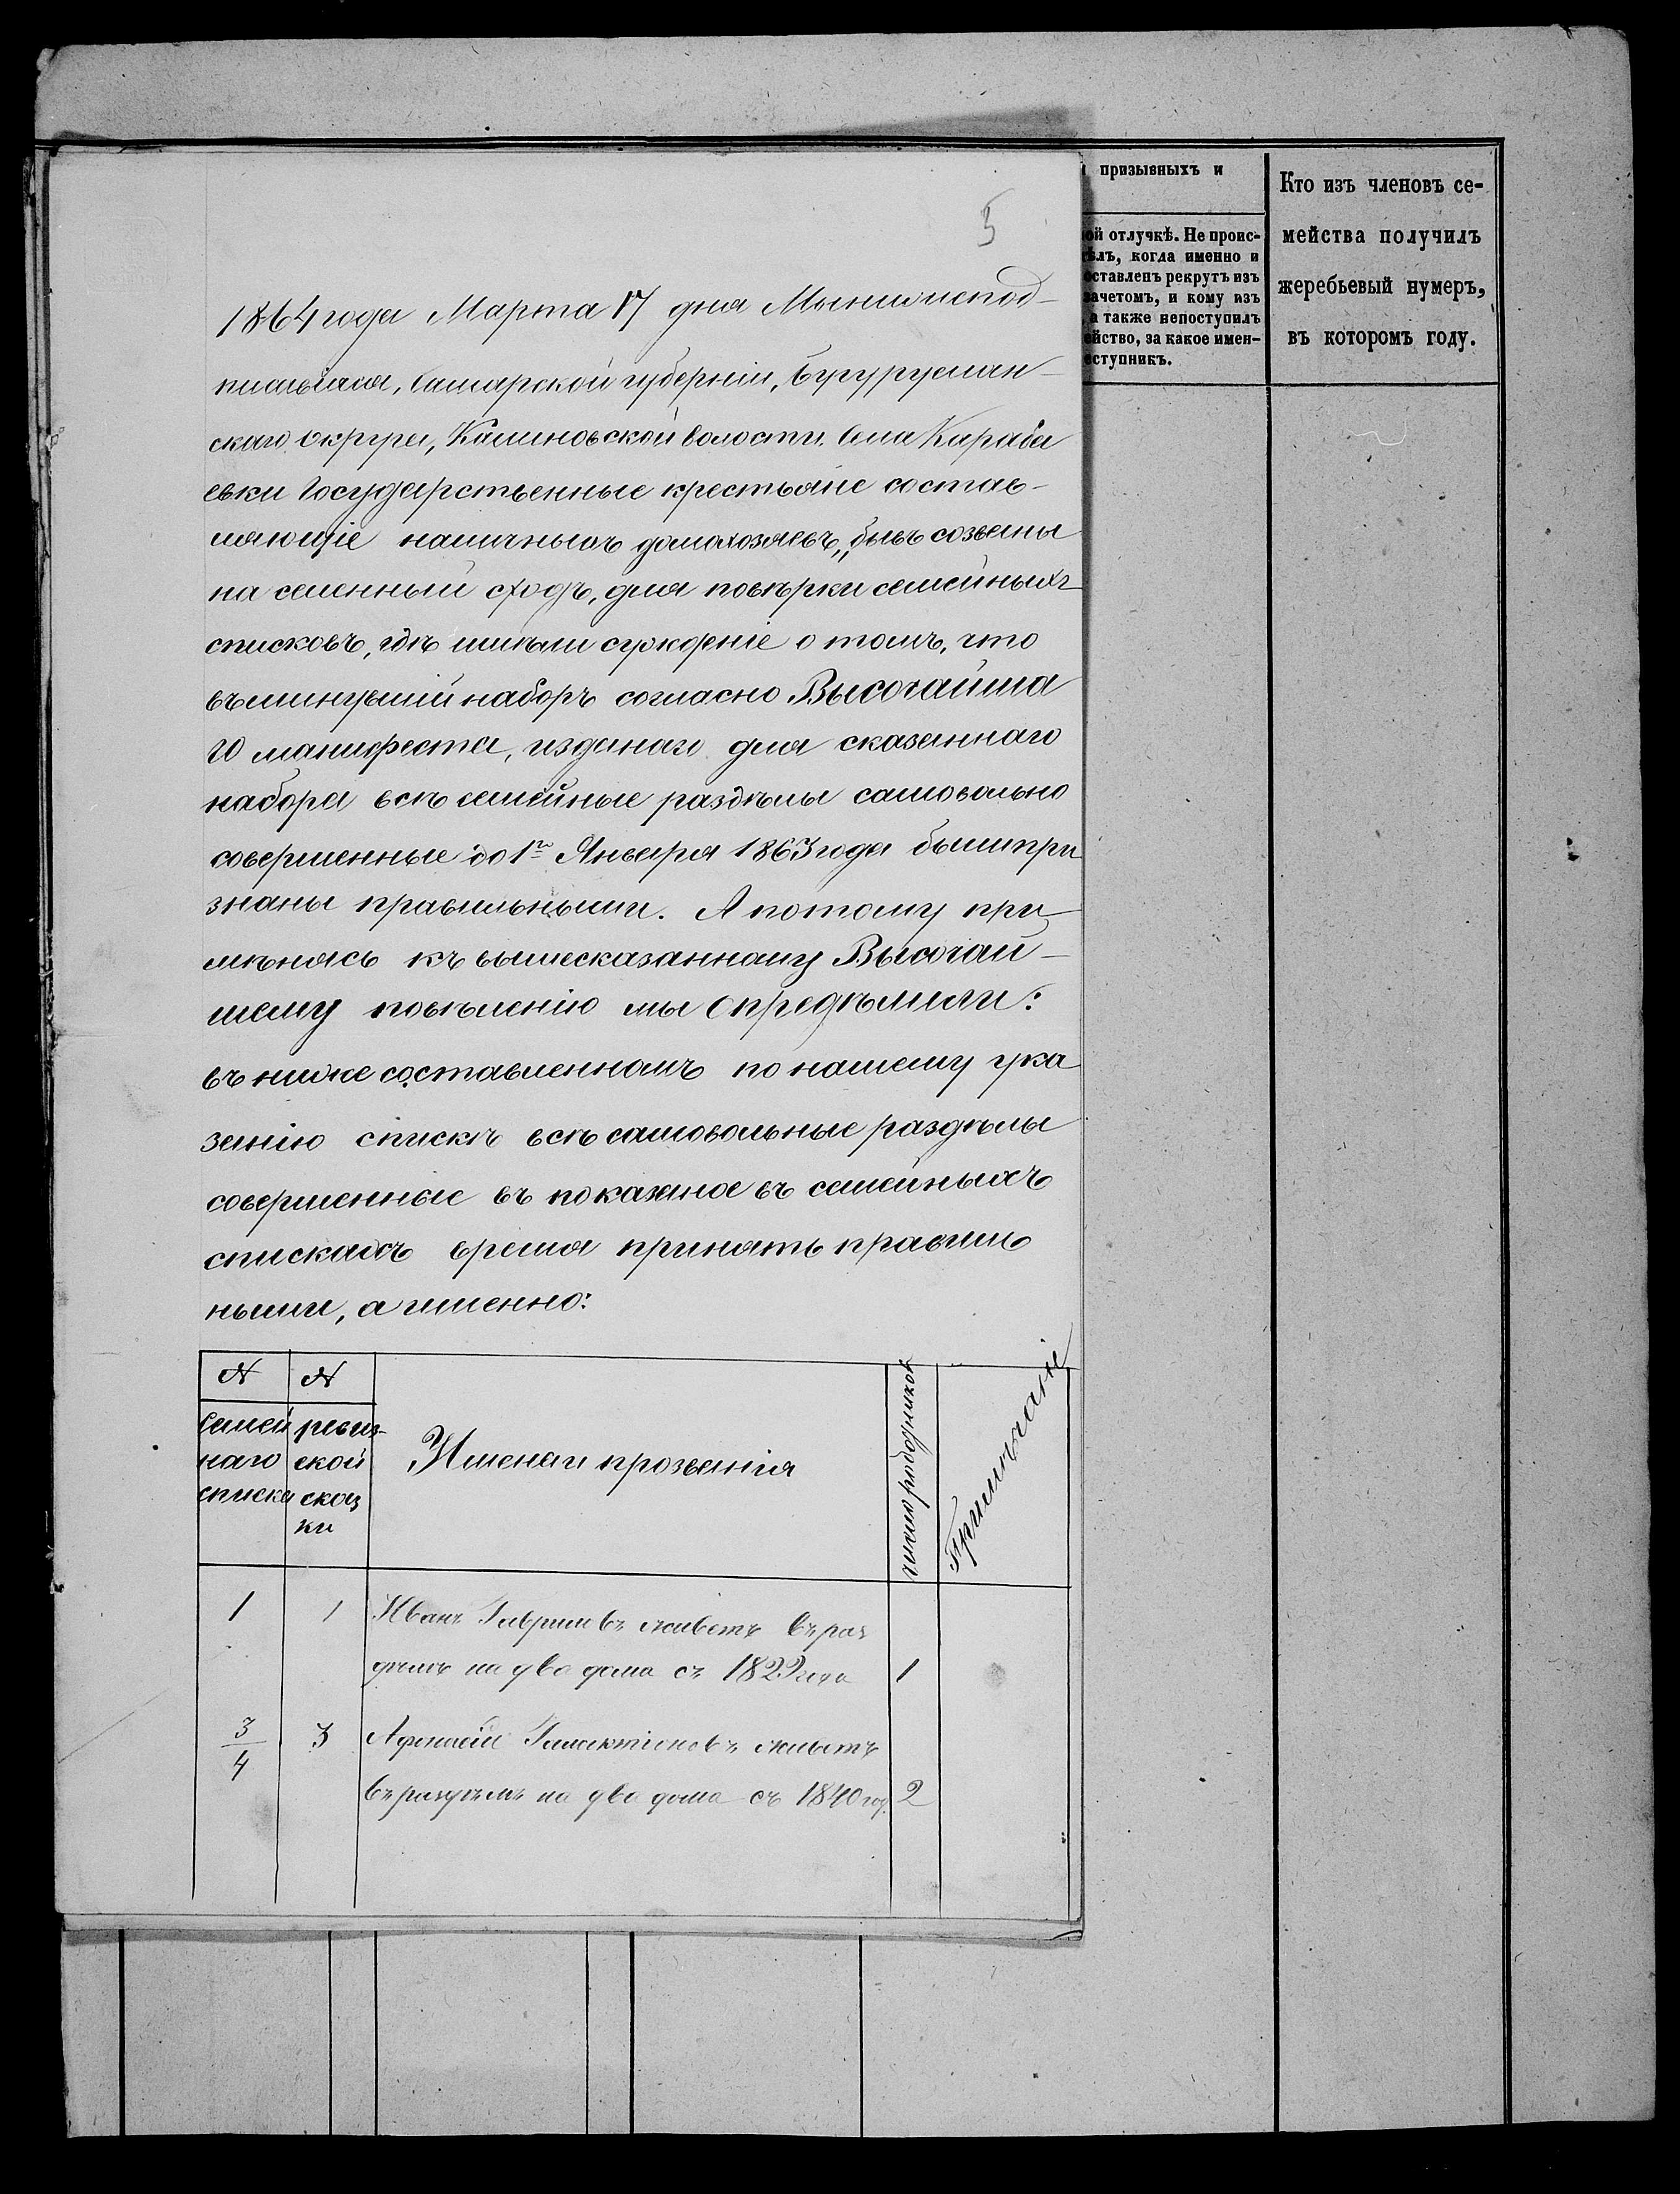 5
1864 года Марта 17 дня Мы нижепод-
писавшiяся, Самарской губернiи, Бугуруслан-
скаго округа, Калиновской волости Села Караба
евки Государственные крестьяне состав-
ляющiе наличныхъ домохозяевъ, бывъ созваны
на селенный сходъ, для повѣрки семейныхъ
списковъ, гдѣ имѣли сужденiе о томъ, что
въ минувшiй наборъ согласно Высочайша
го манифеста, изданаго для сказаннаго
набора всѣ семейные раздѣлы самовольно
совершенные до 1го Января 1863 года были при
знаны правильными. А потому при-
мѣнясь къ вышесказанному Высочай-
шему повѣленiю мы опредѣлили:
въ ниже составленномъ по нашему ука
занiю спискѣ всѣ самовольные раздѣлы
совершенные въ показаное въ семейныхъ
спискахъ время принять правиль
ными, а именно:
№ №
Семей ревиз-
наго ской
списка сказ
ки
Имена и прозванiя
Примѣчанiе
1 1 Иванъ Гавриловъ живетъ въ раз
дѣлѣ на два дома съ 1822 года 1
3/4 3 Афонасiй Галактiоновъ живетъ
въ раздѣлѣ на два дома съ 1840 год. 2
призывныхъ и
ой отлучкѣ. Не проис-
ѣлъ, когда именно и
оставленъ рекрутъ изъ
зачетомъ, и кому изъ
а также непоступилъ
ейство, за какое имен-
еступникъ.
Кто изъ членовъ се-
мейства получилъ
жеребьевый нумеръ,
въ которомъ году.